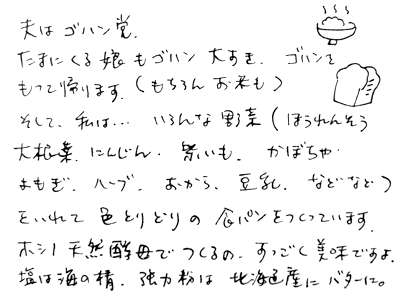 夫はゴハン党.
たまにくる娘もゴハン大すき. ゴハンを
もって帰ります.(もちろんお米も)
そして、私は… いろんな野菜(ほうれんそう
大根葉. にんじん. 紫いも. かぼちゃ.
よもぎ. ハーブ. おから. 豆乳. などなど)
をいれて色とりどりの食パンをつくっています.
ホシノ天然酵母でつくるの. すっごく美味ですよ.
塩は海の精. 強力粉は北海道産にバターに。